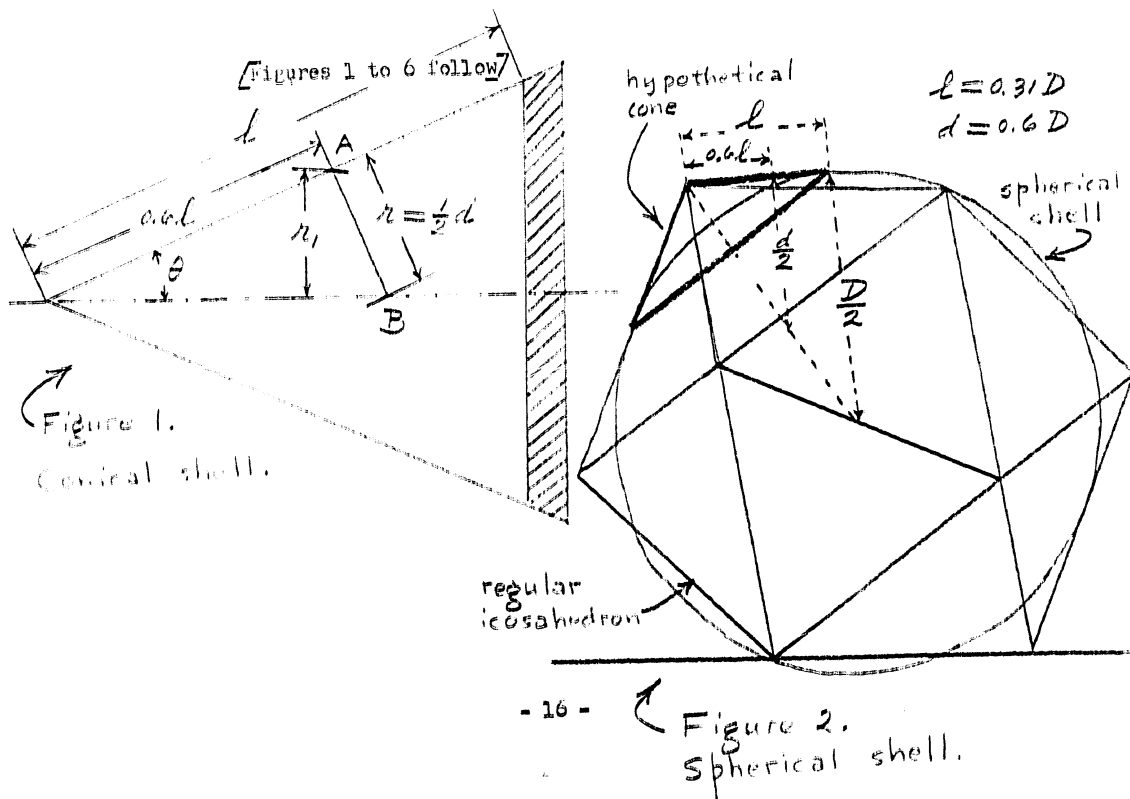 [Figures 1 to 6 follow]
l
0.6l
A
r₁
r = ½ d
θ
B
Figure 1.
Conical shell.
hypothetical
cone
l = 0.31 D
d = 0.6 D
l
0.6l
spherical
shell
d/2
D/2
regular
icosahudron
- 16 -
Figure 2.
Spherical shell.